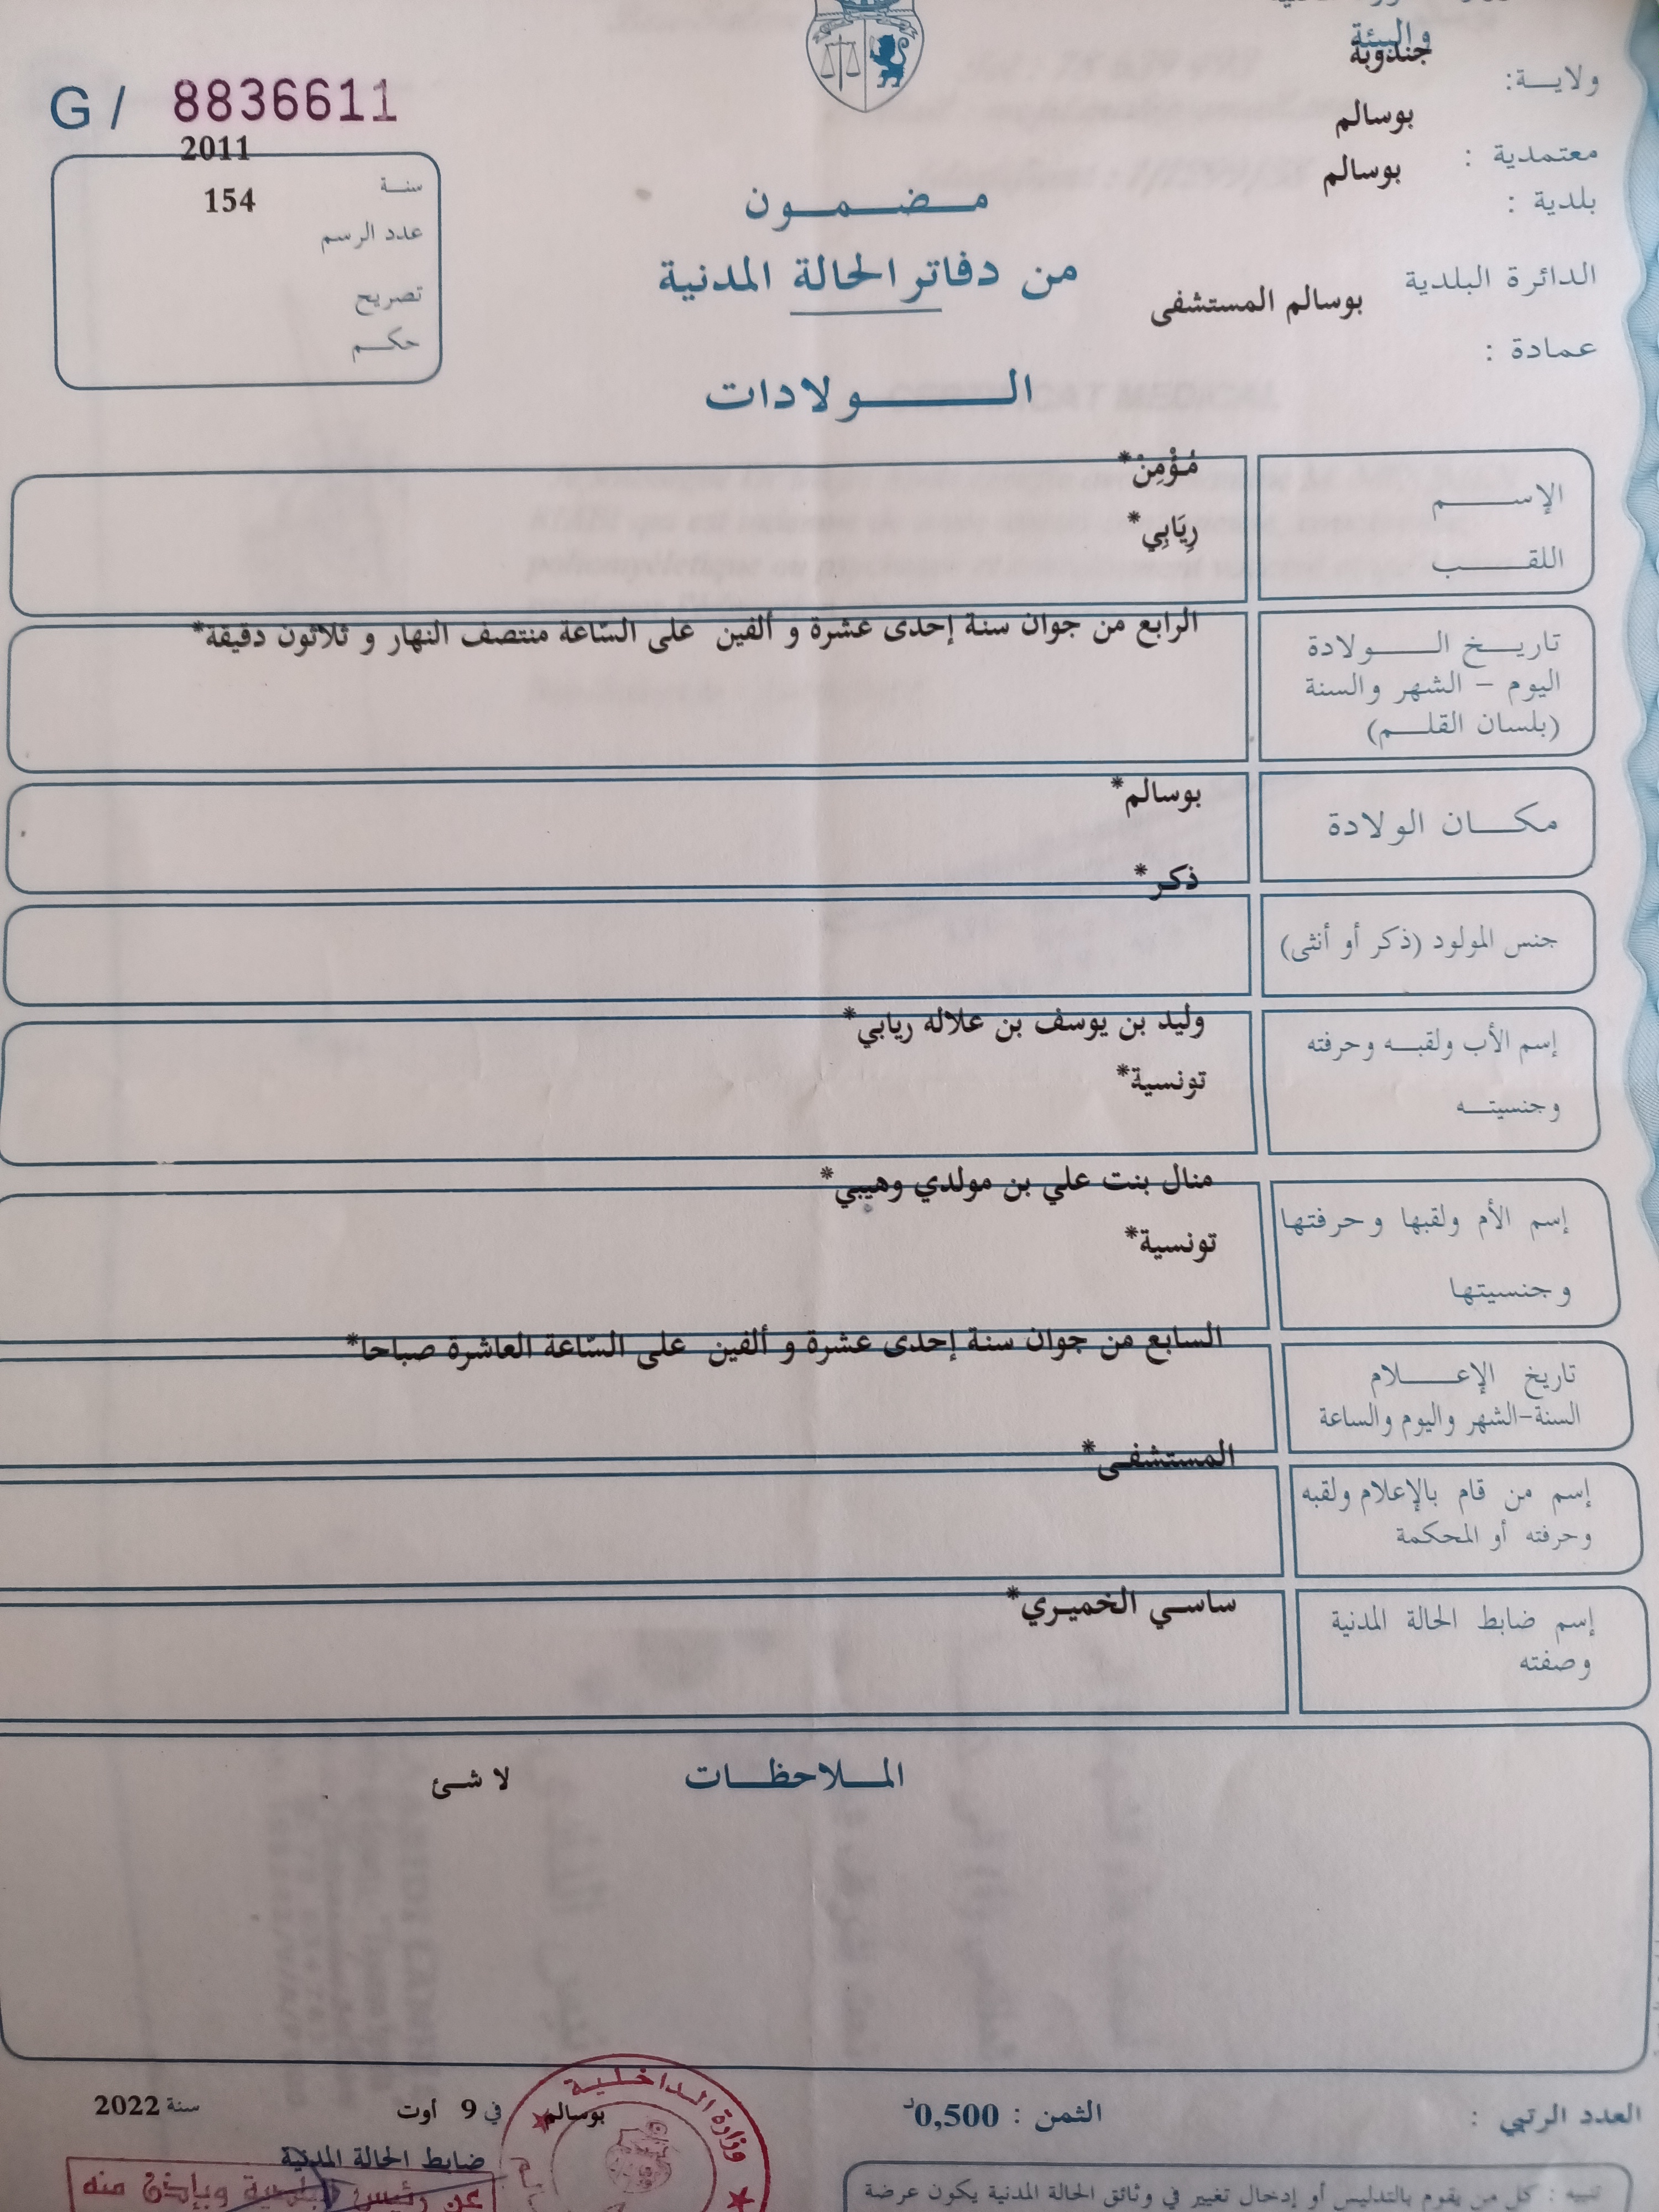 والبيئة
ولاية: جندوبة
معتمدية : بوسالم
بلدية : بوسالم
الدائرة البلدية
بوسالم المستشفى
عمادة :
G / 8836611
2011
سنة
154
عدد الرسم
تصريح
حكم
مضمون
من دفاتر الحالة المدنية
الولادات
الإسم
مُؤْمِنْ*
اللقب
رِيَابِي*
تاريخ الولادة
اليوم - الشهر والسنة
(بلسان القلم)
الرابع من جوان سنة إحدى عشرة و ألفين على السّاعة منتصف النهار و ثلاثون دقيقة*
مكان الولادة
بوسالم*
جنس المولود (ذكر أو أنثى)
ذكر*
إسم الأب ولقبه وحرفته
وجنسيته
وليد بن يوسف بن علاله ريابي*
تونسية*
إسم الأم ولقبها وحرفتها
وجنسيتها
منال بنت علي بن مولدي وهيبي*
تونسية*
تاريخ الإعلام
السنة-الشهر واليوم والساعة
السابع من جوان سنة إحدى عشرة و ألفين على السّاعة العاشرة صباحا*
إسم من قام بالإعلام ولقبه
وحرفته أو المحكمة
المستشفى*
إسم ضابط الحالة المدنية
وصفته
ساسي الخميري*
الملاحظات
لا شئ
العدد الرتبي :
الثمن : 0,500د
بوسالم في 9 أوت سنة 2022
ضابط الحالة المدنية
وزارة الداخلية
عن رئيس البلدية وبإذن منه
تنبيه : كل من يقوم بالتدليس أو إدخال تغيير في وثائق الحالة المدنية يكون عرضة